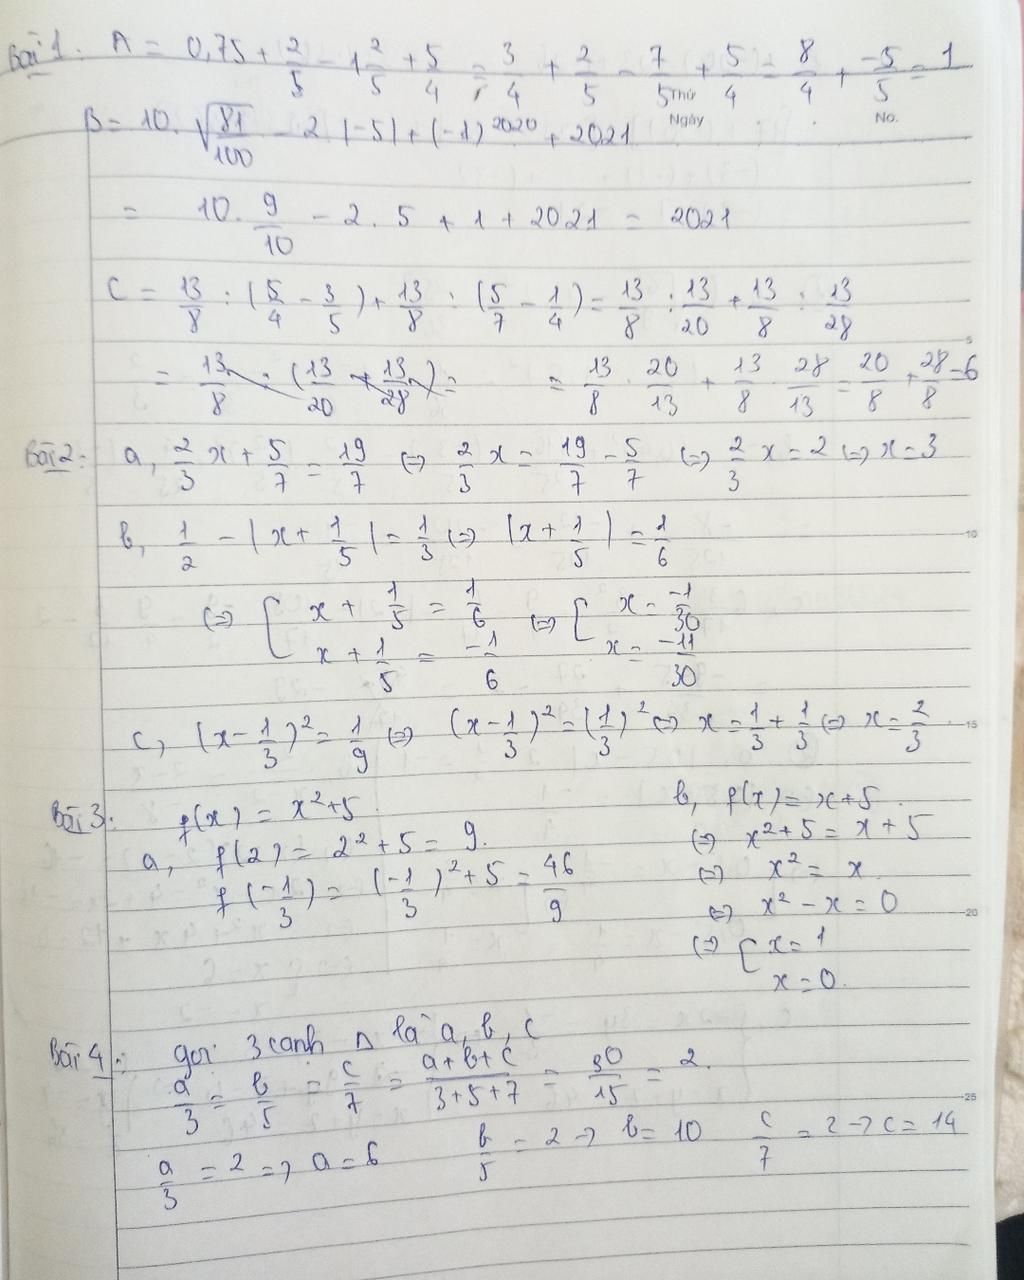 Bài 1. A = 0,75 + 2/5 - 1 2/5 + 5/4 = 3/4 + 2/5 - 7/5 + 5/4 = 8/4 + -5/5 = 1
Thứ
Ngày
No.
B = 10. √81/100 - 2 |-5| + (-1)^2020 + 2021
= 10. 9/10 - 2. 5 + 1 + 2021 = 2021
C = 13/8 : (5/4 - 3/5) + 13/8 : (5/7 - 1/4) = 13/8 : 13/20 + 13/8 : 13/28
5
= 13/8 : (13/20 + 13/28) = = 13/8 . 20/13 + 13/8 . 28/13 = 20/8 + 28/8 = 6
Bài 2: a, 2/3 x + 5/7 = 19/7 (=) 2/3 x = 19/7 - 5/7 (=) 2/3 x = 2 (=) x = 3
b, 1/2 - |x + 1/5| = 1/3 (=) |x + 1/5| = 1/6
10
(=) [ x + 1/5 = 1/6 (=) [ x = -1/30
x + 1/5 = -1/6 x = -11/30
c, (x - 1/3)² = 1/9 (=) (x - 1/3)² = (1/3)² (=) x = 1/3 + 1/3 (=) x = 2/3
15
Bài 3: f(x) = x² + 5.
a, f(2) = 2² + 5 = 9.
f(-1/3) = (-1/3)² + 5 = 46/9
b, f(x) = x + 5.
(=) x² + 5 = x + 5
(=) x² = x.
(=) x² - x = 0
20
(=) [ x = 1
x = 0.
Bài 4: gọi 3 cạnh Δ là a, b, c
a/3 = b/5 = c/7 = a+b+c/3+5+7 = 30/15 = 2.
25
a/3 = 2 => a = 6 b/5 = 2 -> b = 10 c/7 = 2 -> c = 14